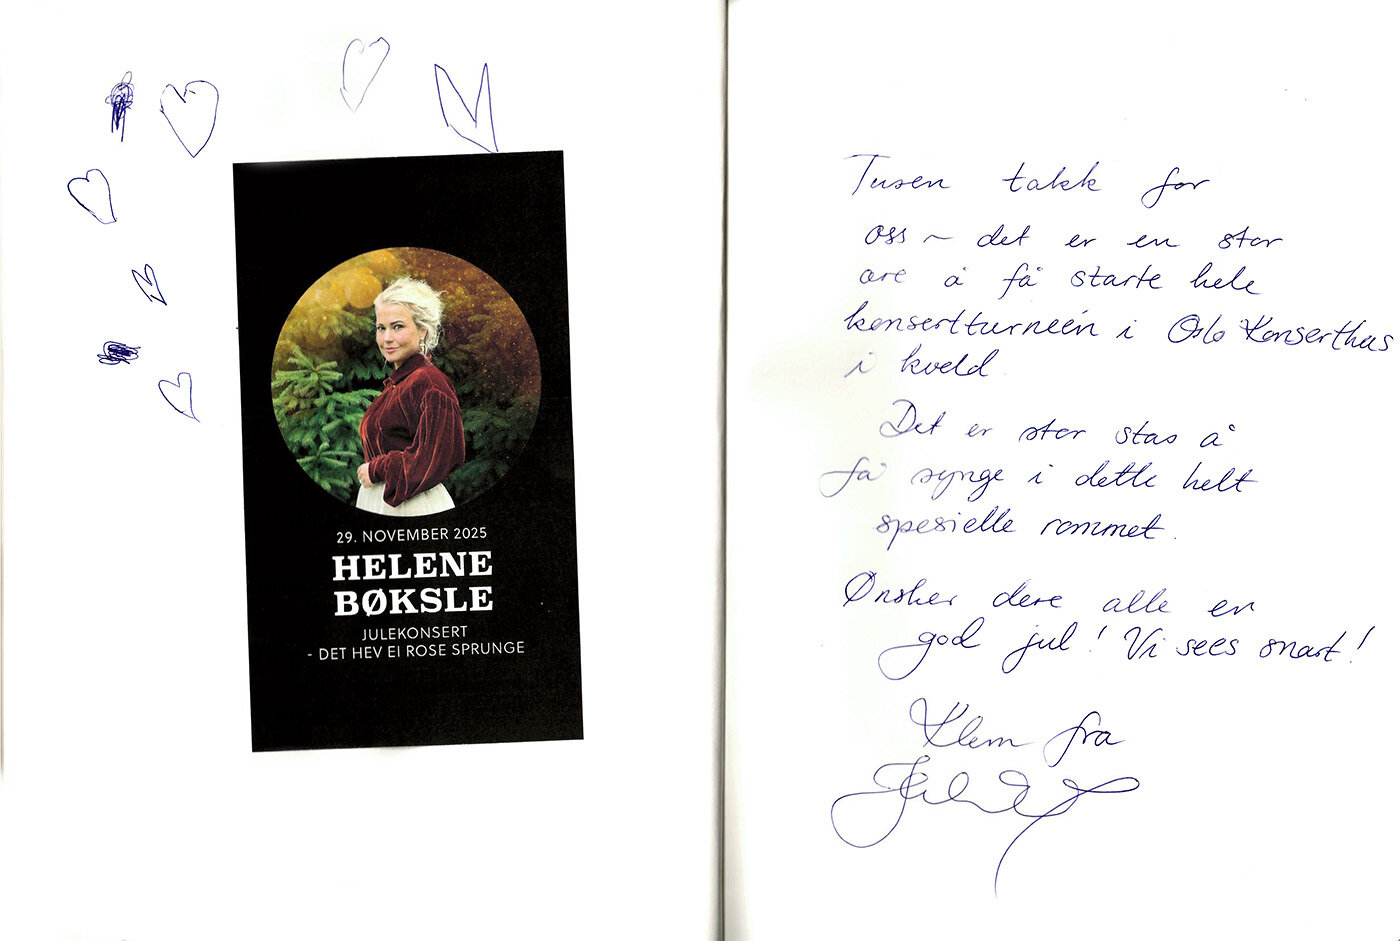 29. NOVEMBER 2025
HELENE
BØKSLE
JULEKONSERT
- DET HEV EI ROSE SPRUNGE
Tusen takk for
oss ~ det er en stor
ære å få starte hele
konsertturneén i Oslo Konserthus
i kveld.
Det er stor stas å
få synge i dette helt
spesielle rommet.
Ønsker dere alle en
god jul! Vi sees snart!
Klem fra